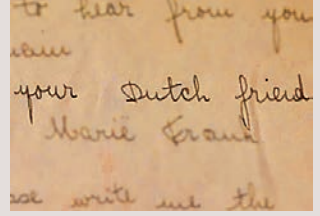 to hear from you
again
your Dutch friend
Marie Frank
please write me the